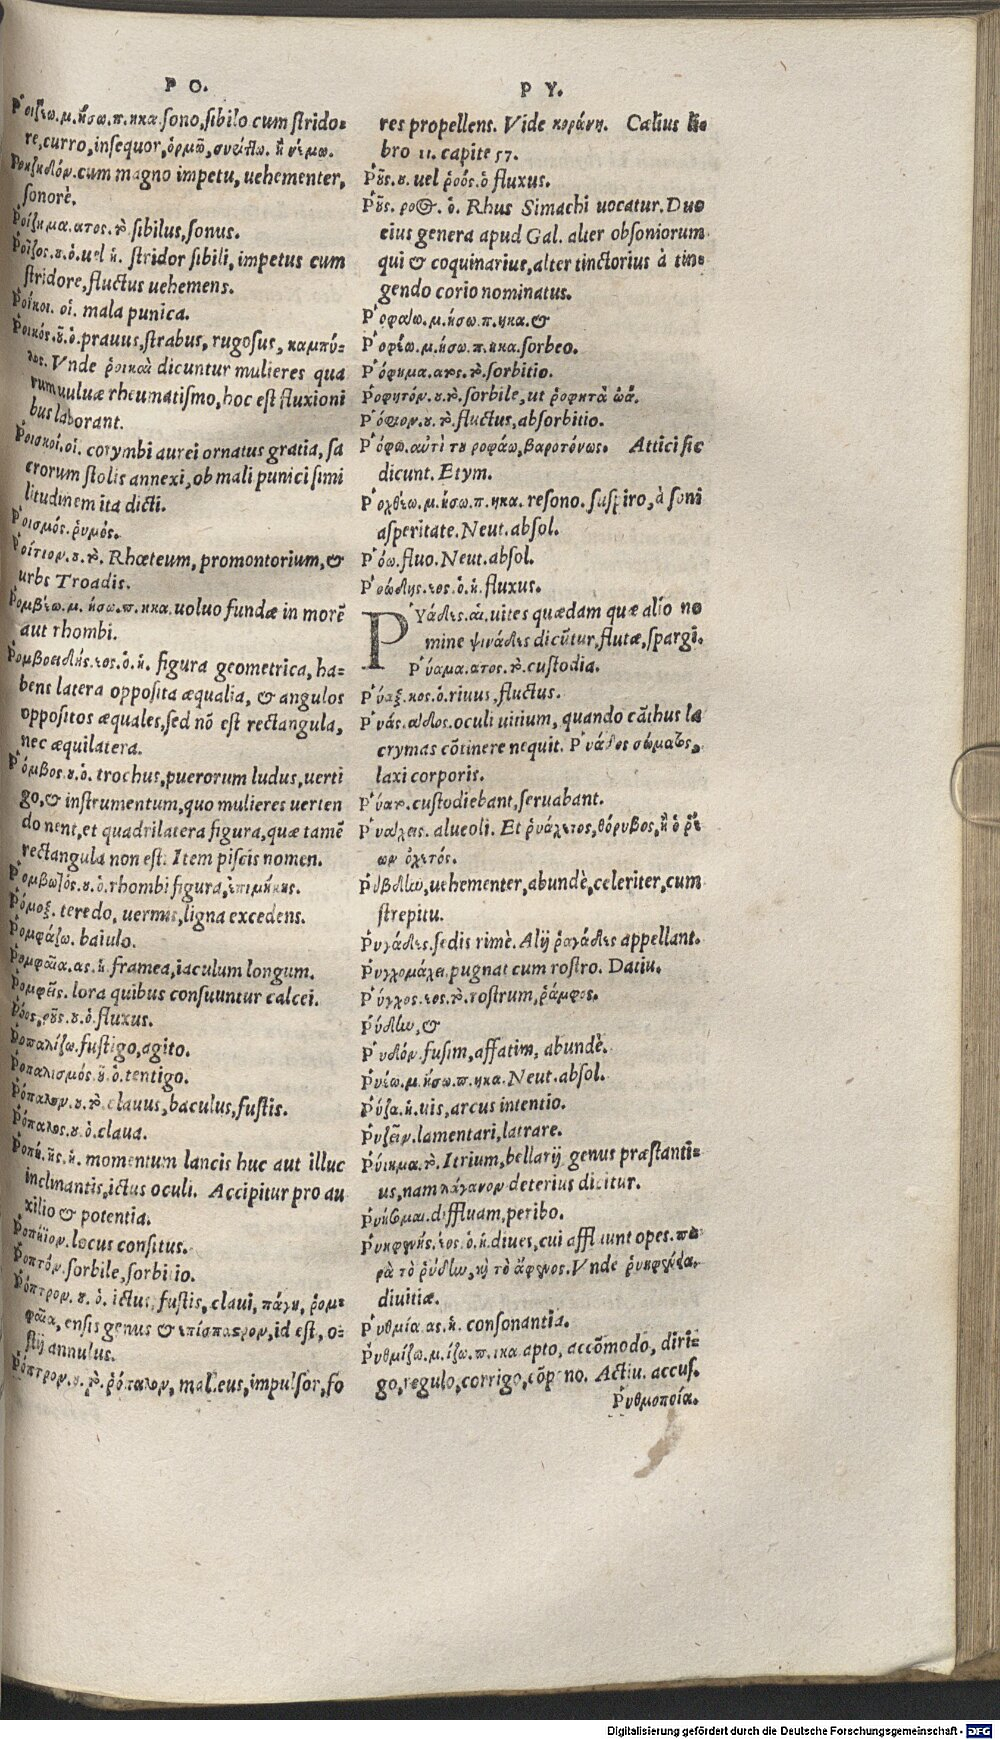 Ρ Ο.
Ῥοιζέω.μ.ήσω.π.ηκα.sono,sibilo cum strido-
re,curro,insequor,ὁρμῶ,
Ῥοιζηδόν.cum magno impetu, uehementer,
sonorè.
Ῥοίζημα.ατος.τὸ sibilus,sonus.
Ῥοῖζος.ου.ὁ.uel ἡ. stridor sibili, impetus cum
stridore,fluctus uehemens.
Ῥοίκοι. οἱ. mala punica.
Ῥοικός.οῦ.ὁ.prauus,strabus, rugosus, καμπύ-
λος. Vnde ῥοικαὶ dicuntur mulieres qua
rum uuluæ rheumatismo,hoc est fluxioni
bus laborant.
Ῥοισκοί.οἱ. corymbi aurei ornatus gratia, sa
crorum stolis annexi, ob mali punici simi
litudinem ita dicti.
Ῥοισμός.ῥυμός.
Ῥοίτιον.ου.τὸ. Rhœteum, promontorium, &
urbs Troadis.
Ῥομβέω.μ.ήσω.π.ηκα.uoluo fundæ in morē
aut rhombi.
Ῥομβοειδής.έος.ὁ.ἡ. figura geometrica, ha-
bens latera opposita æqualia, & angulos
oppositos æquales,sed nō est rectangula,
nec æquilatera.
Ῥόμβος.ου.ὁ. trochus,puerorum ludus,uerti
go,& instrumentum,quo mulieres uerten
do nent,et quadrilatera figura,quæ tamē
rectangula non est. Item piscis nomen.
Ῥομβωτός.οῦ.ὁ.rhombi figura,ἐπιμήκης.
Ῥόμοξ. teredo, uermis,ligna excedens.
Ῥομφάζω. baiulo.
Ῥομφαία.ας.ἡ.framea,iaculum longum.
Ῥομφεῖς. lora quibus consuuntur calcei.
Ῥόος,ροῦς.ου.ὁ.fluxus.
Ῥοπαλίζω.fustigo,agito.
Ῥοπαλισμός.οῦ.ὁ.tentigo.
Ῥόπαλον.ου.τὸ.clauus,baculus,fustis.
Ῥόπαλος.ου.ὁ.claua.
Ῥοπή.ῆς.ἡ. momentum lancis huc aut illuc
inclinantis,ictus oculi. Accipitur pro au
xilio & potentia.
Ῥοπήϊον.locus consitus.
Ῥοπτόν.sorbile,sorbitio.
Ῥόπτρον.ου.ὁ. ictus, fustis, claui, πάγη, ῥομ-
φαία, ensis genus & ἐπίσπαστρον,id est, o-
stij annulus.
Ῥόπτρον.ου.τὸ.ῥόπαλον, malleus,impulsor,fo
Ρ Υ.
res propellens. Vide κοράνη. Cælius li-
bro 11. capite 57.
Ῥοῦς.οῦ.uel ῥοός.ὁ fluxus.
Ῥοῦς. ρος. ὁ. Rhus Simachi uocatur. Duo
eius genera apud Gal. alter obsoniorum
qui & coquinarius,alter tinctorius à tin-
gendo corio nominatus.
Ῥοφάω.μ.ήσω.π.ηκα.&
Ῥοφέω.μ.ήσω.π.ηκα.sorbeo.
Ῥόφημα.ατος.τὸ.sorbitio.
Ῥοφητόν.οῦ.τὸ.sorbile,ut ῥοφητὰ ὠά.
Ῥόφιον.ου.τὸ.fluctus,absorbitio.
Ῥόφω.αὐτὶ του ροφάω,βαροτόνως. Attici sic
dicunt. Etym.
Ῥοχθέω.μ.ήσω.π.ηκα. resono. suspiro,à soni
asperitate. Neut. absol.
Ῥόω.fluo.Neut.absol.
Ῥοώδης.εος.ὁ.ἡ.fluxus.
ῬΥάδες.αἱ.uites quædam quæ alio no
mine ψινάδες dicūtur,flutæ,spargi.
Ῥύαμα.ατος.τὸ.custodia.
Ῥύαξ.κος.ὁ.riuus,fluctus.
Ῥυάς.αδος.oculi uitium, quando cāthus la
crymas cōtinere nequit. Ῥυάδος σώματος,
laxi corporis.
Ῥύατο.custodiebant,seruabant.
Ῥυάχεις. alueoli. Et ῥυάχετος,θόρυβος,ἢ ὁ ῥέ
ων ὀχετός.
Ῥύβδην,uehementer,abundè,celeriter,cum
strepitu.
Ῥυγάδες.sedis rimè. Alij ῥαγάδες appellant.
Ῥυγχομάχει.pugnat cum rostro. Datiu.
Ῥύγχος.εος.τὸ.rostrum,ῥάμφος.
Ῥύδην,&
Ῥυδόν.fusim,affatim, abundè.
Ῥυέω.μ.ήσω.π.ηκα.Neut.absol.
Ῥύζα.ἡ.uis,arcus intentio.
Ῥυζεῖν.lamentari,latrare.
Ῥύημα.τὸ.Itrium,bellarij genus præstanti-
us,nam λάγανον deterius dicitur.
Ῥυήσομαι.diffluam,peribo.
Ῥυηφενής.έος.ὁ.ἡ.diues,cui affluunt opes. πα
ρὰ τὸ ῥύδην, καὶ τὸ ἄφενος.Vnde ῥυηφενία.
diuitiæ.
Ῥυθμία.ας.ἡ. consonantia.
Ῥυθμίζω.μ.ίσω.π.ικα apto, accōmodo, diri-
go,regulo,corrigo,cōpono. Actiu. accus.
Ῥυθμοποιία.
Digitalisierung gefördert durch die Deutsche Forschungsgemeinschaft - DFG